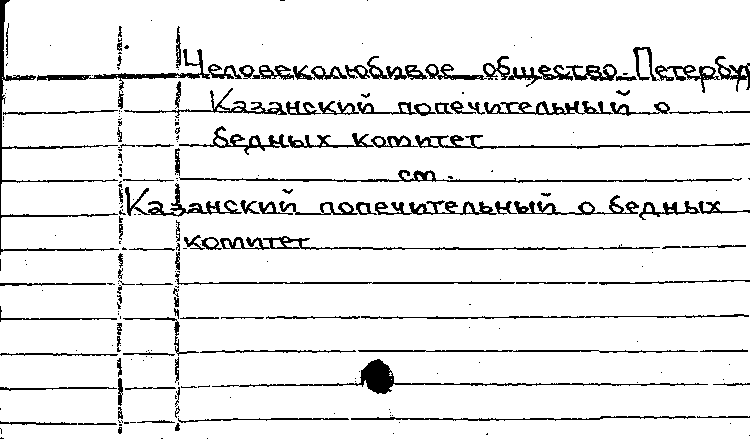 Человеколюбивое общество. Петербур
Казанский попечительный о
бедных комитет
см.
Казанский попечительный о бедных
комитет